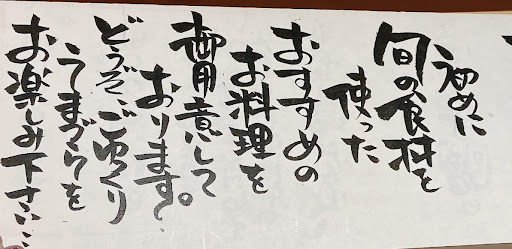 初めに
旬の食材を
使った
おすすめの
お料理を
御用意して
おります。
どうぞ、ごゆくり
うまづらを
お楽しみ下さい…